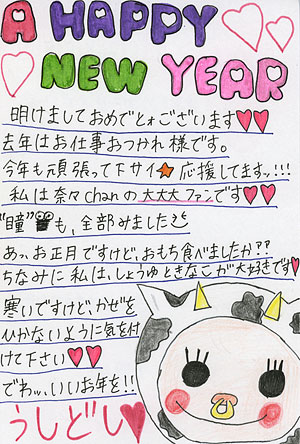 A HAPPY
NEW YEAR
明けましておめでとォございます♥♥
去年はお仕事おつかれ様です。
今年も頑張って下サイ★応援してますッ!!!
私は奈々chanの大大大ファンです♥♥
"瞳"も、全部みました
あっ、お正月ですけど、おもち食べましたか??
ちなみに私は、しょうゆときなこが大好きです♥
寒いですけど、かぜを
ひかないように気を付
けて下さい♥♥
でわッ、いいお年を!!
うしどし♥